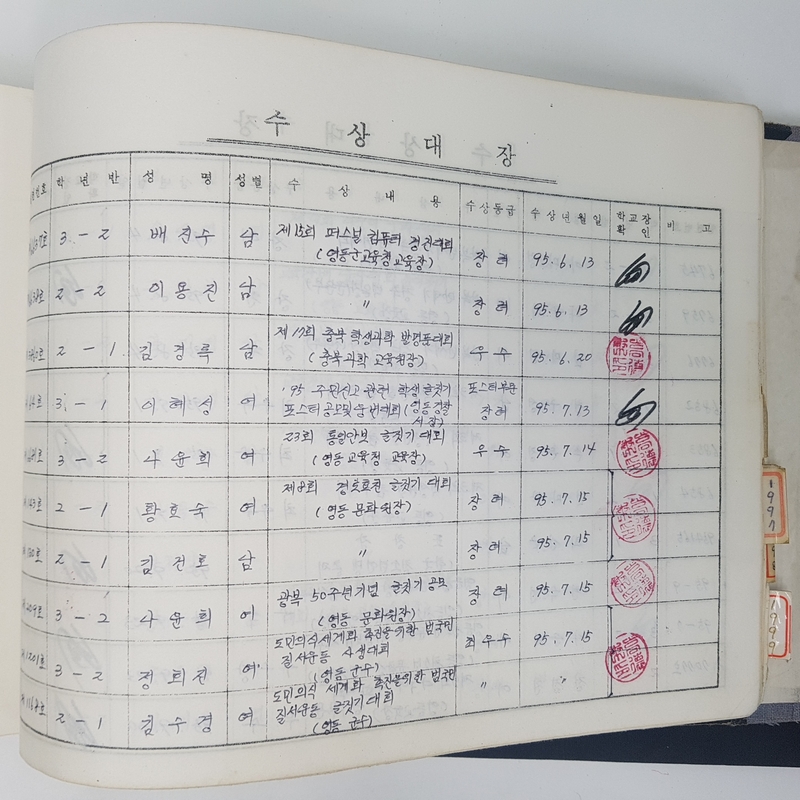 수 상 대 장
학 년 반 성 명 성별 수 상 내 용 수상등급 수상년월일 학교장 확인 비 고
3-2 배진수 남 제15회 퍼스널 컴퓨터 경진대회 장려 95.6.13
(영동군교육청교육장)
2-2 이용진 남 〃 장려 95.6.13
2-1 김경륵 남 제17회 충북 학생과학 발명품대회 우수 95.6.20
(충북과학교육원장)
3-1 이혜성 여 '95 주민신고관련 학생글짓기 포스터부문
포스터공모및웅변대회(영동경찰 장려 95.7.13
서장)
3-2 나윤희 여 23회 통일안보 글짓기대회 우수 95.7.14
(영동교육청 교육장)
2-1 황효숙 여 제8회 경로효친 글짓기대회 장려 95.7.15
(영동문화원장)
2-1 김진호 남 〃 장려 95.7.15
3-2 나윤희 여 광복 50주년기념 글짓기공모 장려 95.7.15
(영동 문화원장)
3-2 정희진 여 도민의식세계화 촉진을위한 범국민 최우수 95.7.15
질서운동 사생대회
(영동군수)
2-1 김수경 여 도민의식 세계화 촉진을위한 범국민 〃 〃
질서운동 글짓기대회
(영동군수)
1997
1999